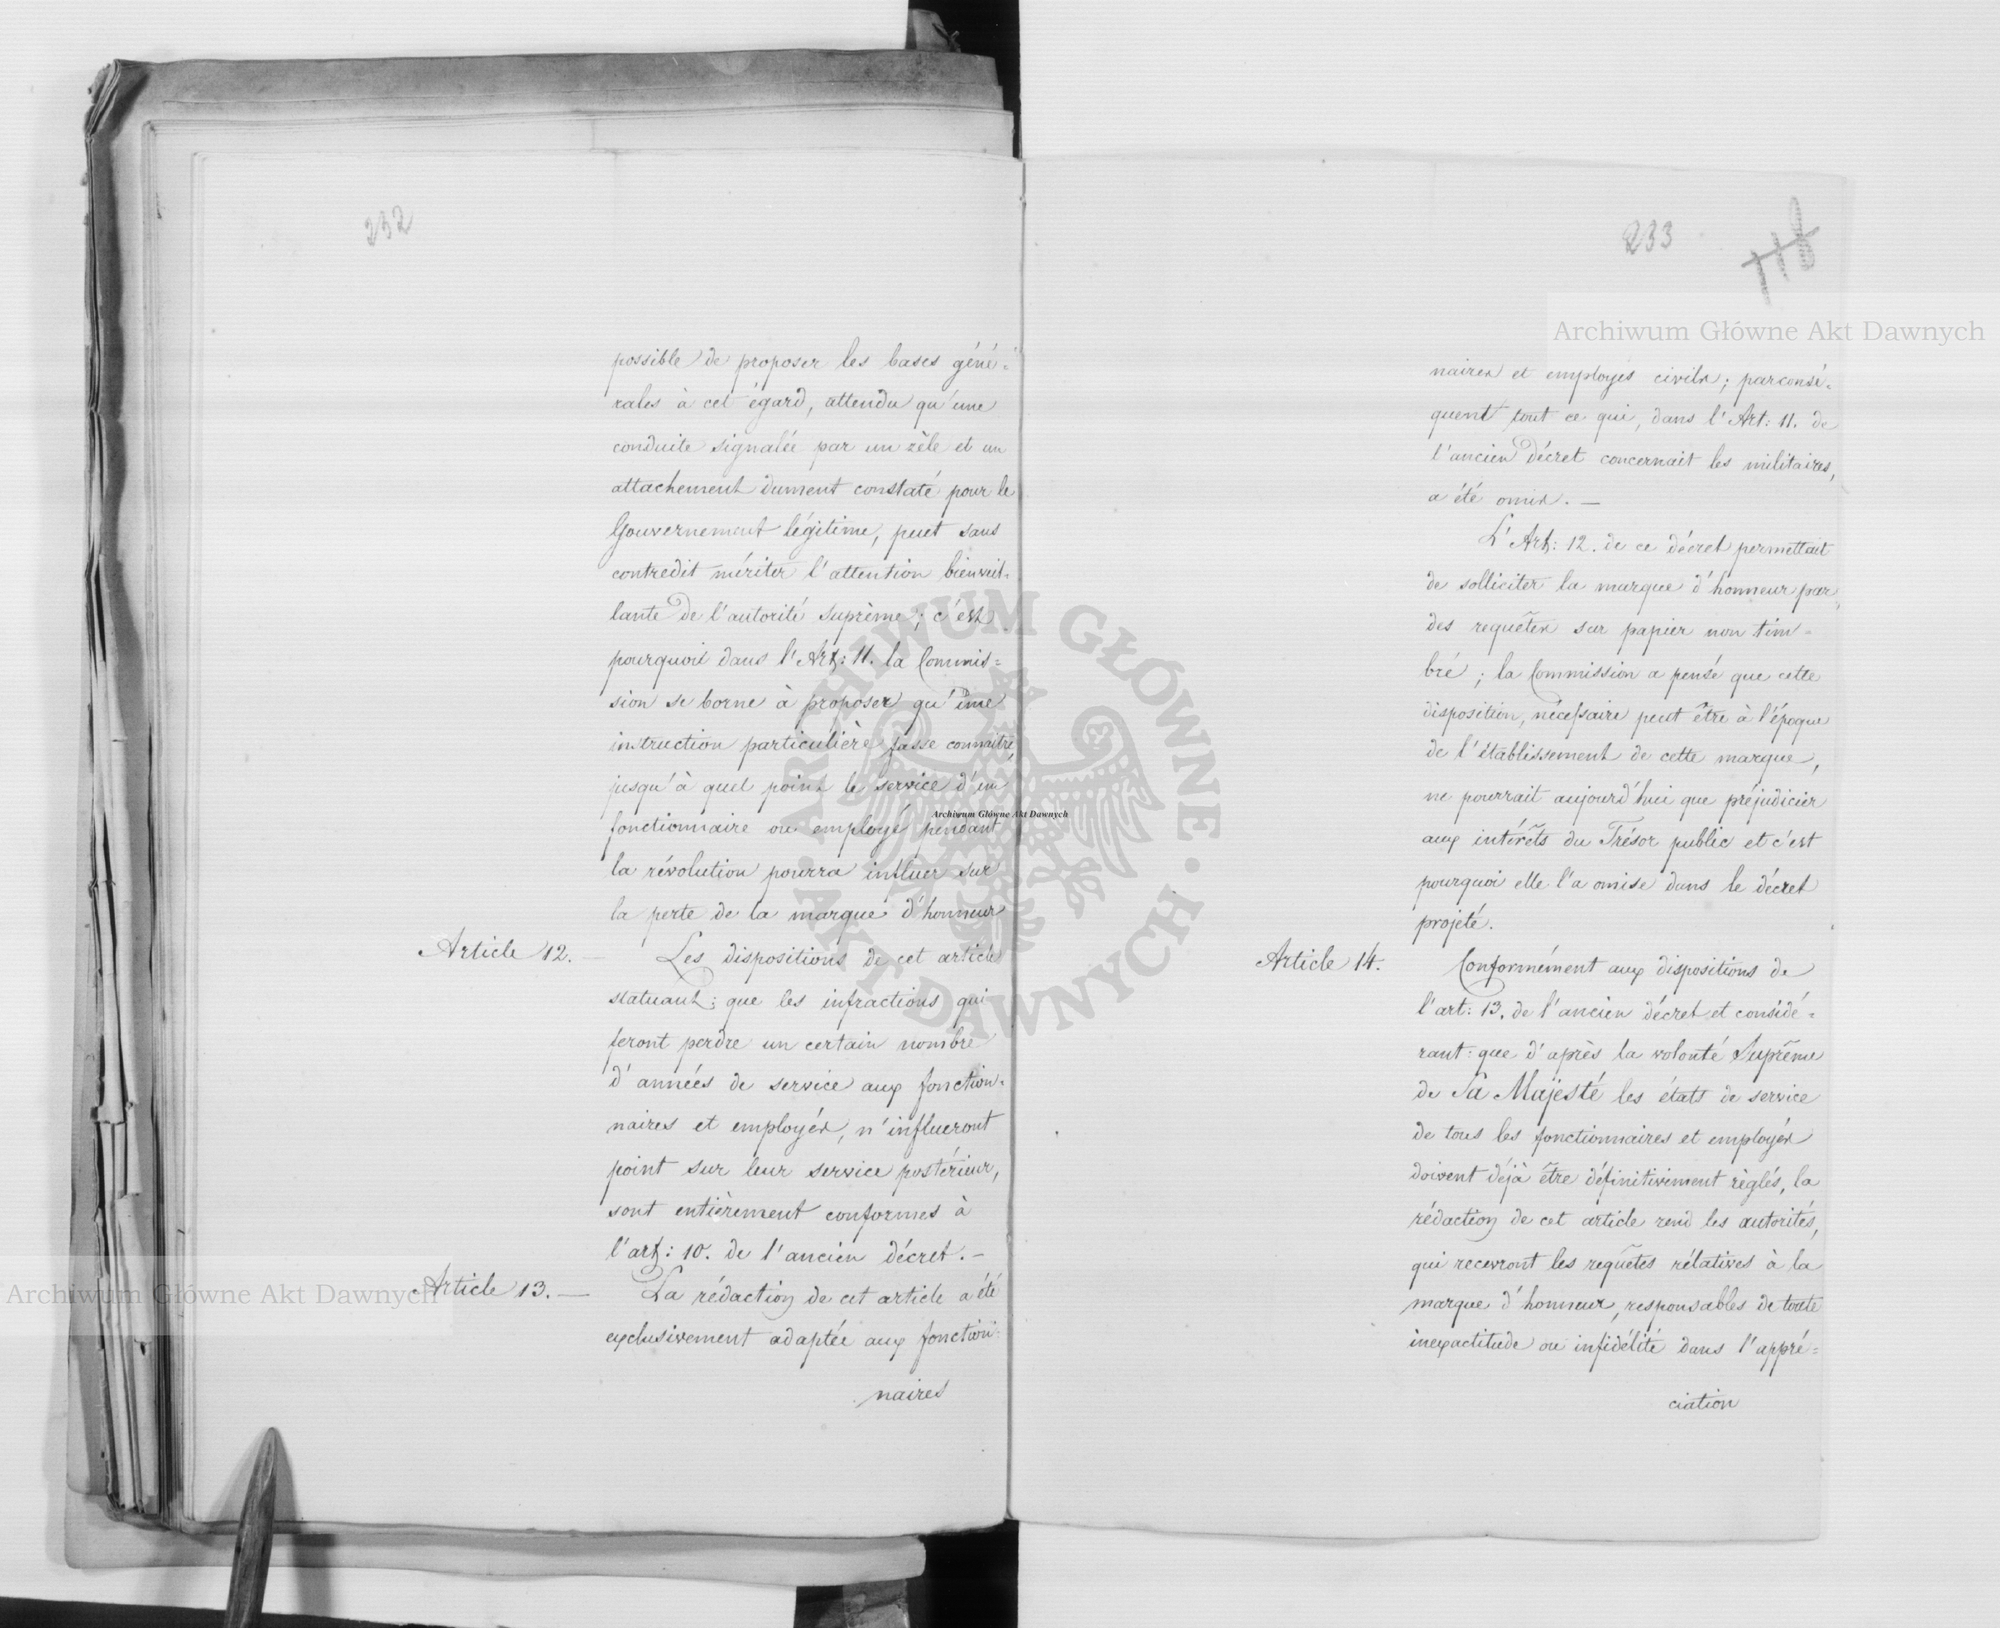 232
possible de proposer les bases géné-
rales à cet égard, attendu qu'une
conduite signalée par un zèle et un
attachement dument constaté pour le
Gouvernement légitime, peut sans
contredit mériter l'attention bienveil-
lante de l'autorité suprème; c'est
pourquoi dans l'Art: 11. la Commis-
sion se borne à proposer qu'une
instruction particulière fasse connaitre,
jusqu'à quel point le service d'un
fonctionnaire ou employé pendant
la révolution pourra influer sur
la perte de la marque d'honneur
Article 12. —
Les dispositions de cet article
statuant: que les infractions qui
feront perdre un certain nombre
d'années de service aux fonction-
naires et employés, n'influeront
point sur leur service postérieur,
sont entièrement conformes à
l'art: 10. de l'ancien décret. —
Article 13. —
La rédaction de cet article a été
exclusivement adaptée aux fonction-
naires
233
118
naires et employes civils; parconsé-
quent tout ce qui, dans l'Art: 11. de
l'ancien Décret concernait les militaires,
a été omis. —
L'Art: 12. de ce décret permettait
de solliciter la marque d'honneur par
des requêtes sur papier non tim-
bré; la Commission a pensé que cette
disposition, nécessaire peut être à l'époque
de l'établissement de cette marque,
ne pourrait aujourd'hui que préjudicier
aux intérêts du Trésor public et c'est
pourquoi elle l'a omise dans le décret
projeté.
Article 14.
Conformément aux dispositions de
l'art: 13. de l'ancien décret et considé-
rant: que d'après la volonté Suprême
de Sa Majesté les états de service
de tous les fonctionnaires et employés
doivent déjà être définitivement règlés, la
rédaction de cet article rend les autorités,
qui recevront les requêtes rélatives à la
marque d'honneur, responsables de toute
inexactitude ou infidélité dans l'appré-
ciation
Archiwum Główne Akt Dawnych
Archiwum Główne Akt Dawnych
Archiwum Główne Akt Dawnych
ARCHIWUM GŁÓWNE · AKT DAWNYCH ·